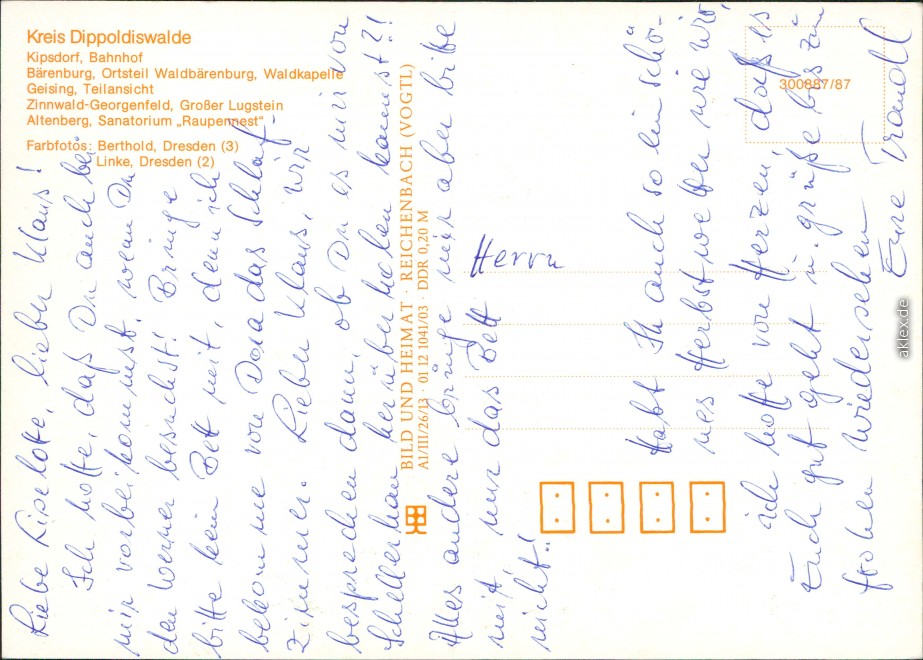 Kreis Dippoldiswalde
Kipsdorf, Bahnhof
Bärenburg, Ortsteil Waldbärenburg, Waldkapelle
Geising, Teilansicht
Zinnwald-Georgenfeld, Großer Lugstein
Altenberg, Sanatorium „Raupennest"
Farbfotos: Berthold, Dresden (3)
Linke, Dresden (2)
300887/87
BILD UND HEIMAT · REICHENBACH (VOGTL)
A1/III/26/13 · 01 12 1041/03 · DDR 0,20 M
Herrn
Liebe Liselotte, lieber Klaus!
Ich hoffe, daß Du auch bei
mir vorbeikommst, wenn Du
den Werner besuchst! Bringe
bitte kein Bett mit, denn ich
bekomme von Dora das Schlaf-
zimmer. Lieber Klaus, wir
besprechen dann, ob Du es mir von
Schellerhau herüber holen kannst?!
Alles andere bringe mir aber bitte
mit, nur das Bett
nicht!
Habt Ihr auch so ein schö-
nes Herbstwetter wie wir,
ich hoffe von Herzen, daß es
Euch gut geht u. grüße bis zum
frohen Wiedersehen
Eure Traudl
aklex.de